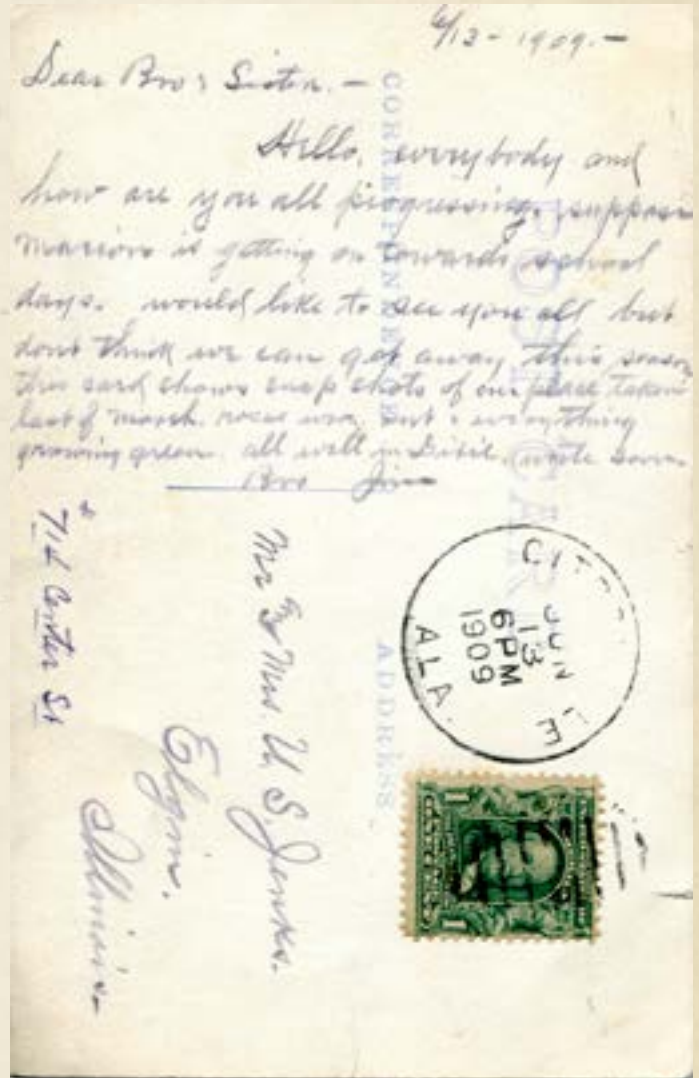 6/13 - 1909. -
Dear Bro & Sister. -
Hello, everybody and
how are you all progressing. suppose
marion is getting on towards school
days. would like to see you all but
dont think we can get away this season
this card shows snap shots of our place taken
last of march. roses out & everything
growing green. all well in write soon
Bro Jim
CORRESPONDENCE
POST CAR
ADDRESS
Mr & Mrs. U S Jenks.
Elgin,
Illinois
Center St
CIT LE
JUN
13
6 PM
1909
ALA.
1 1